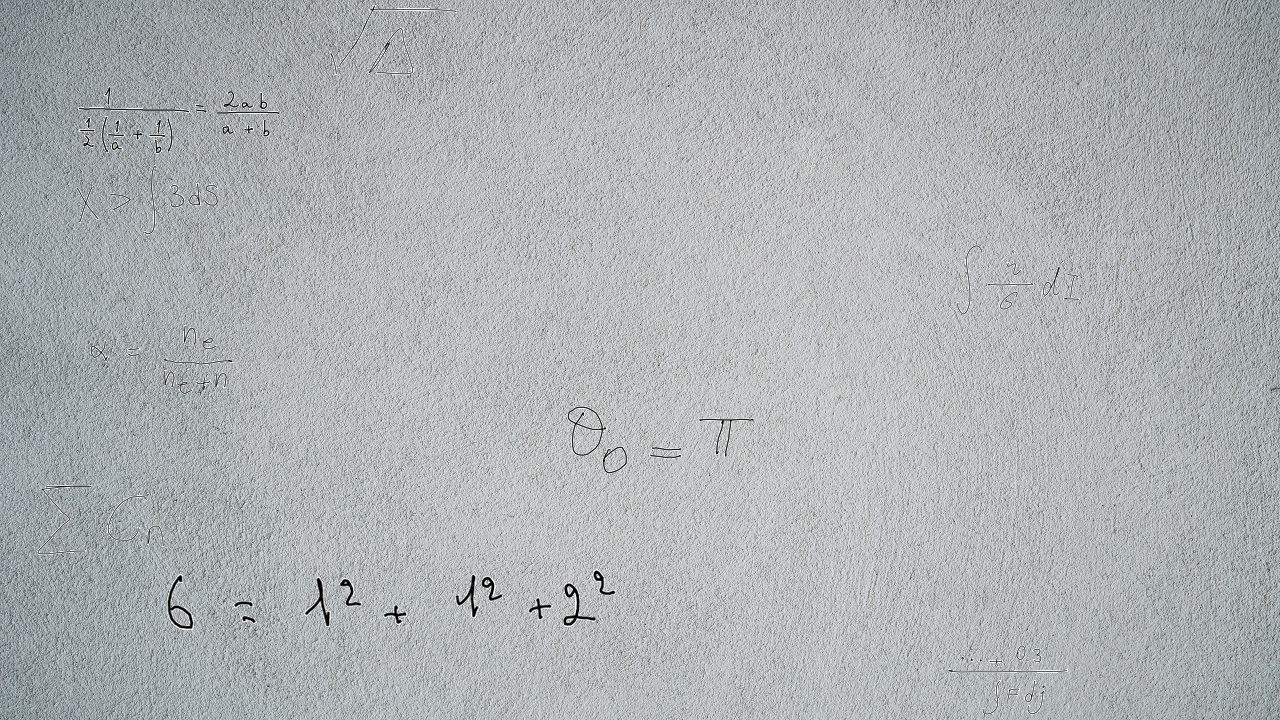 √Δ
1 / (1/2 (1/a + 1/b)) = 2ab / (a + b)
X > ∫ 3dS
∫ 2/6 dI
α = n_e / (n_e + n)
θ_0 = π
∑ C_n
6 = 1² + 1² + 2²
...+ 0.3 / ∫ = dj